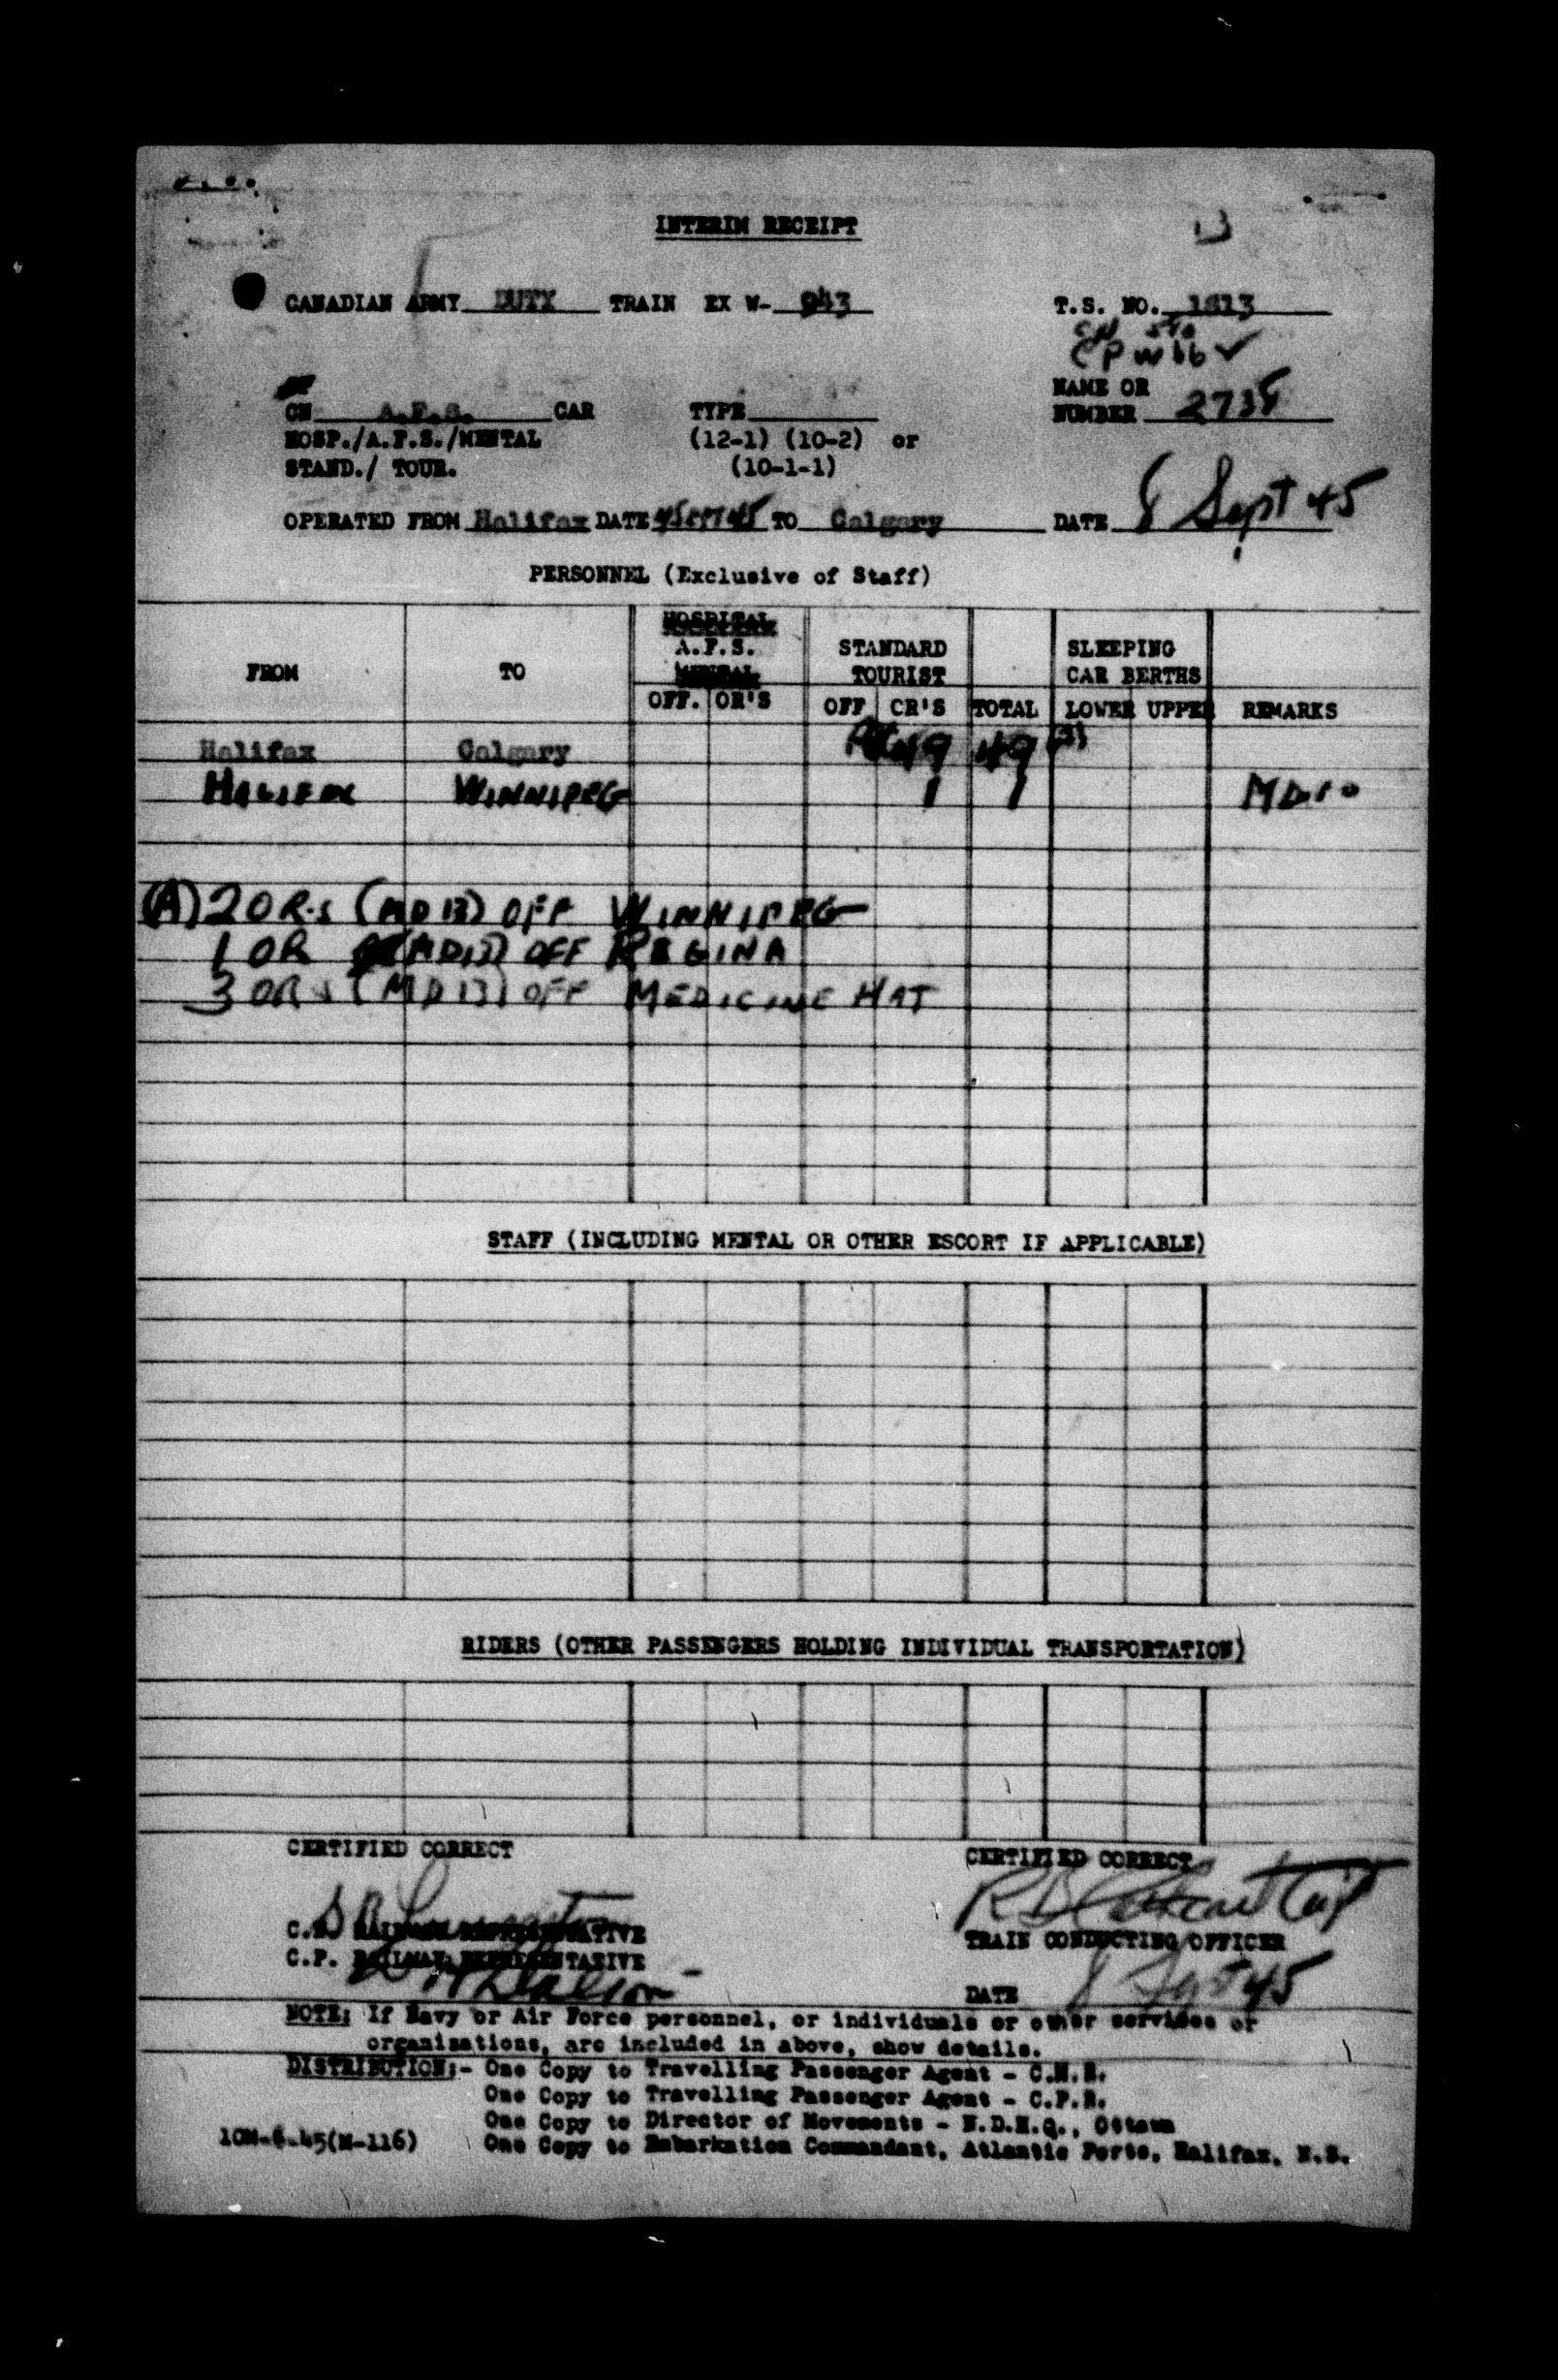 INTERIM RECEIPT
CANADIAN ARMY DUTY TRAIN EX W- 943 T.S. NO. 1813
CP W66 ✓
CN A.F.S. CAR TYPE NAME OR NUMBER 2735
HOSP./A.F.S./MENTAL (12-1) (10-2) or
STAND./ TOUR. (10-1-1)
OPERATED FROM Halifax DATE 4 SEPT 45 TO Calgary DATE 8 Sept 45
PERSONNEL (Exclusive of Staff)
FROM TO HOSPITAL A.F.S. MENTAL STANDARD TOURIST SLEEPING CAR BERTHS
OFF. OR'S OFF OR'S TOTAL LOWER UPPER REMARKS
Halifax Calgary 49 49
HALIFAX WINNIPEG 1 1 MD10
(A) 2 OR.S (MD 13) OFF WINNIPEG
1 OR (MD13) OFF REGINA
3 ORS (MD 13) OFF MEDICINE HAT
STAFF (INCLUDING MENTAL OR OTHER ESCORT IF APPLICABLE)
RIDERS (OTHER PASSENGERS HOLDING INDIVIDUAL TRANSPORTATION)
CERTIFIED CORRECT CERTIFIED CORRECT
C.N. RAILWAY REPRESENTATIVE
C.P. RAILWAY REPRESENTATIVE TRAIN CONDUCTING OFFICER
DATE 8 Sept 45
NOTE: If Navy or Air Force personnel, or individuals or other services or
organizations, are included in above, show details.
DISTRIBUTION:- One Copy to Travelling Passenger Agent - C.N.R.
One Copy to Travelling Passenger Agent - C.P.R.
One Copy to Director of Movements - N.D.H.Q., Ottawa
10M-6-45(M-116) One Copy to Embarkation Commandant, Atlantic Ports, Halifax, N.S.